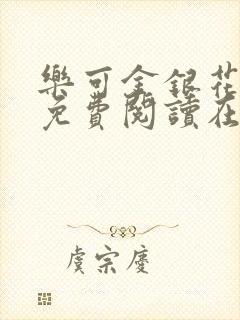 樂可金銀花
免費閱讀在
虞宗慶